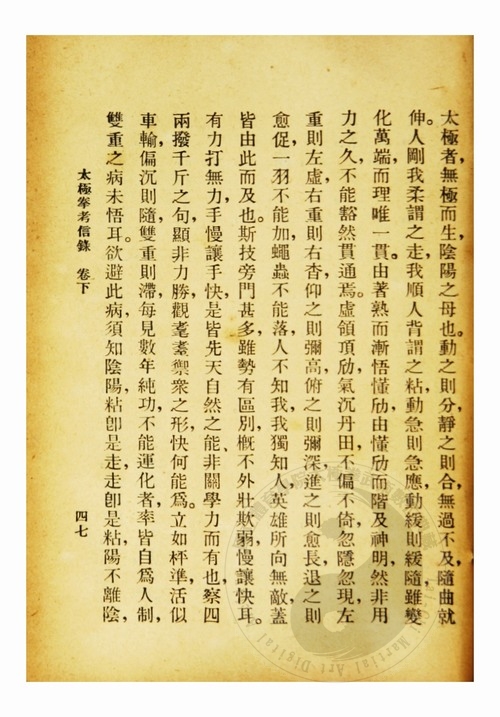 太極者,無極而生,陰陽之母也。動之則分,靜之則合,無過不及,隨曲就
伸。人剛我柔謂之走,我順人背謂之粘,動急則急應,動緩則緩隨,雖變
化萬端,而理唯一貫。由著熟而漸悟懂劤,由懂劤而階及神明,然非用
力之久,不能豁然貫通焉。虛領頂劤,氣沉丹田,不偏不倚,忽隱忽現,左
重則左虛,右重則右杳,仰之則彌高,俯之則彌深,進之則愈長,退之則
愈促,一羽不能加,蠅蟲不能落,人不知我,我獨知人,英雄所向無敵,蓋
皆由此而及也。斯技旁門甚多,雖勢有區別,概不外壯欺弱,慢讓快耳。
有力打無力,手慢讓手快,是皆先天自然之能,非關學力而有也,察四
兩撥千斤之句,顯非力勝,觀耄耋禦衆之形,快何能爲。立如枰準,活似
車輪,偏沉則隨,雙重則滯,每見數年純功,不能運化者,率皆自爲人制,
雙重之病未悟耳。欲避此病,須知陰陽,粘卽是走,走卽是粘,陽不離陰,
太極拳考信錄 卷下
四七